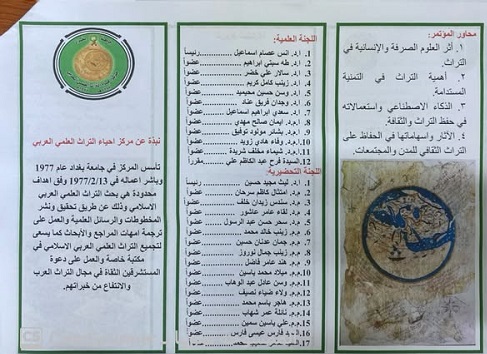 محاور المؤتمر:
١. أثر العلوم الصرفة والإنسانية في
التراث.
٢. أهمية التراث في التنمية
المستدامة.
٣. الذكاء الاصطناعي واستعمالاته
في حفظ التراث والثقافي.
٤. الآثار واسهاماتها في الحفاظ على
التراث الثقافي للمدن والمجتمعات.
اللجنة العلمية:
1. أ.د. انس عصام اسماعيل..............رئيساً
2. أ.د. طه سبتي ابراهيم..............عضواً
3. أ.د. سالار علي خضر..............عضواً
4. أ.د. زينب كامل كريم..............عضواً
5. أ.د. وسن حسين محيميد..............عضواً
6. أ.د. وجدان فريق عناد..............عضواً
7. أ.د. سعدي ابراهيم اسماعيل..............عضواً
8. أ.م.د. ايمان صالح مهدي..............عضواً
9. أ.م.د. بشائر مولود توفيق..............عضواً
10. أ.م.د. وفاء هادي زويد..............عضواً
11. أ.م.د. شيماء مخلف شريدة..............عضواً
12. السيدة فرح عبد الكاظم علي..............مقرراً
اللجنة التحضيرية:
1. أ.د. ليث مجيد حسين..............رئيساً
2. أ.م.د. امتثال كاظم سرحان..............عضواً
3. م.د. سندس زيدان خلف..............عضواً
4. م.د. لقاء عامر عاشور..............عضواً
5. م.د. سحر حسن عبد الرسول..............عضواً
6. م.م. زينب خالد محمد..............عضواً
7. م.م. جمان عدنان حسين..............عضواً
8. م.م. زينب جمال نوروز..............عضواً
9. م.م. هند عامر فاضل..............عضواً
10. م.م. ميلاد محمد ياسين..............عضواً
11. م.م. وسن عادل عبد الوهاب..............عضواً
12. م.م. ولاء ضياء نصيف..............عضواً
13. م.م. هاجر باسم محمد..............عضواً
14. م.م. نائلة عمر شهاب..............عضواً
15. م.م. علي ياسين سمين..............عضواً
16. فارس عيسى فارس..............عضواً
17. محمد..............عضواً
نبذة عن مركز احياء التراث العلمي العربي
تأسس المركز في جامعة بغداد عام 1977
وباشر اعماله في 1977/2/13 وفق اهداف
محدودة هي بحث التراث العلمي العربي
الاسلامي وذلك عن طريق تحقيق ونشر
المخطوطات والرسائل العلمية والعمل على
ترجمة امهات المراجع والأبحاث كما يسعى
لتجميع التراث العلمي العربي الاسلامي في
مكتبة خاصة والعمل على دعوة
المستشرقين الثقاة في مجال التراث العرب
والانتفاع من خبراتهم.
CS